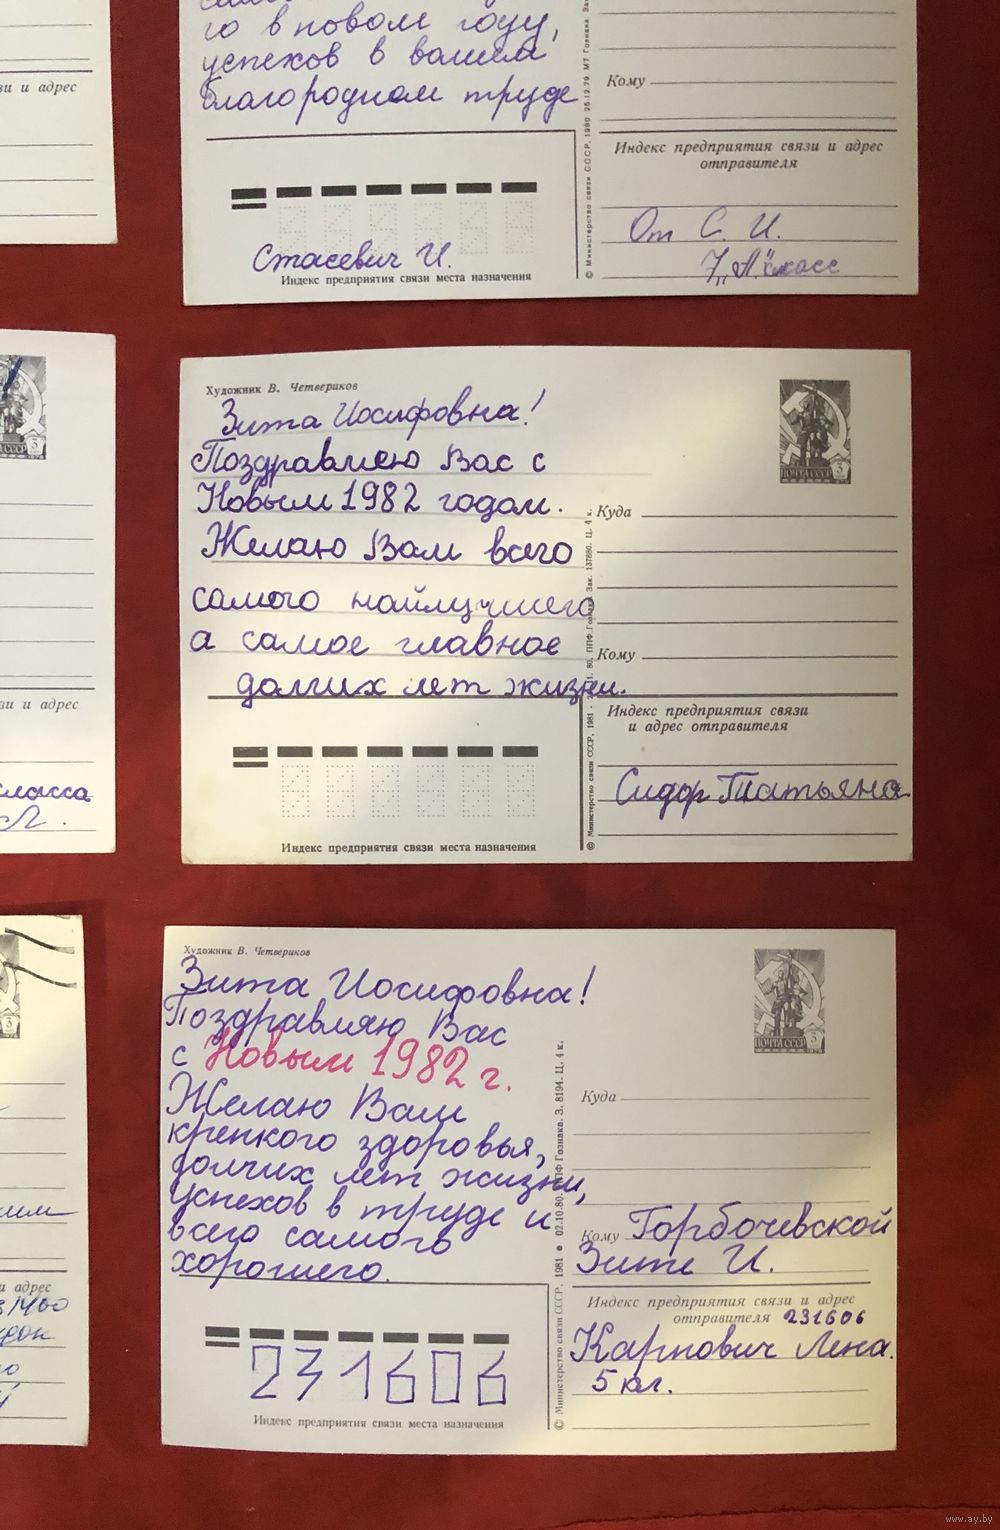 го в новом году,
успехов в вашем
благородном труде
Кому
Индекс предприятия связи и адрес
отправителя
От С. И.
7 „А" класс
Стасевич И.
Индекс предприятия связи места назначения
© Министерство связи СССР, 1980 25.12.79. МТ Гознака. За
зи и адрес
Художник В. Четвериков
Зита Иосифовна!
Поздравляю Вас с
Новым 1982 годом.
Желаю Вам всего
самого найлучшего
а самое главное
долгих лет жизни.
ПОЧТА СССР 3
Куда
Кому
Индекс предприятия связи
и адрес отправителя
Сидор Татьяна
Индекс предприятия связи места назначения
© Министерство связи СССР, 1981 80. ППФ Гознака. Зак. 137880. Ц. 4 к.
ПОЧТА СССР 3
зи и адрес
класса
Художник В. Четвериков
Зита Иосифовна!
Поздравляю Вас
с Новым 1982 г.
Желаю Вам
крепкого здоровья,
долгих лет жизни,
успехов в труде и
всего самого
хорошего.
ПОЧТА СССР 3
Куда
Кому Горбочевской
Зите И.
Индекс предприятия связи и адрес
отправителя 231606
Карпович Лена.
5 кл.
231606
Индекс предприятия связи места назначения
© Министерство связи СССР, 1981 • 02.10.80. ППФ Гознака. З. 8194. Ц. 4 к.
3
и адрес
www.ay.by